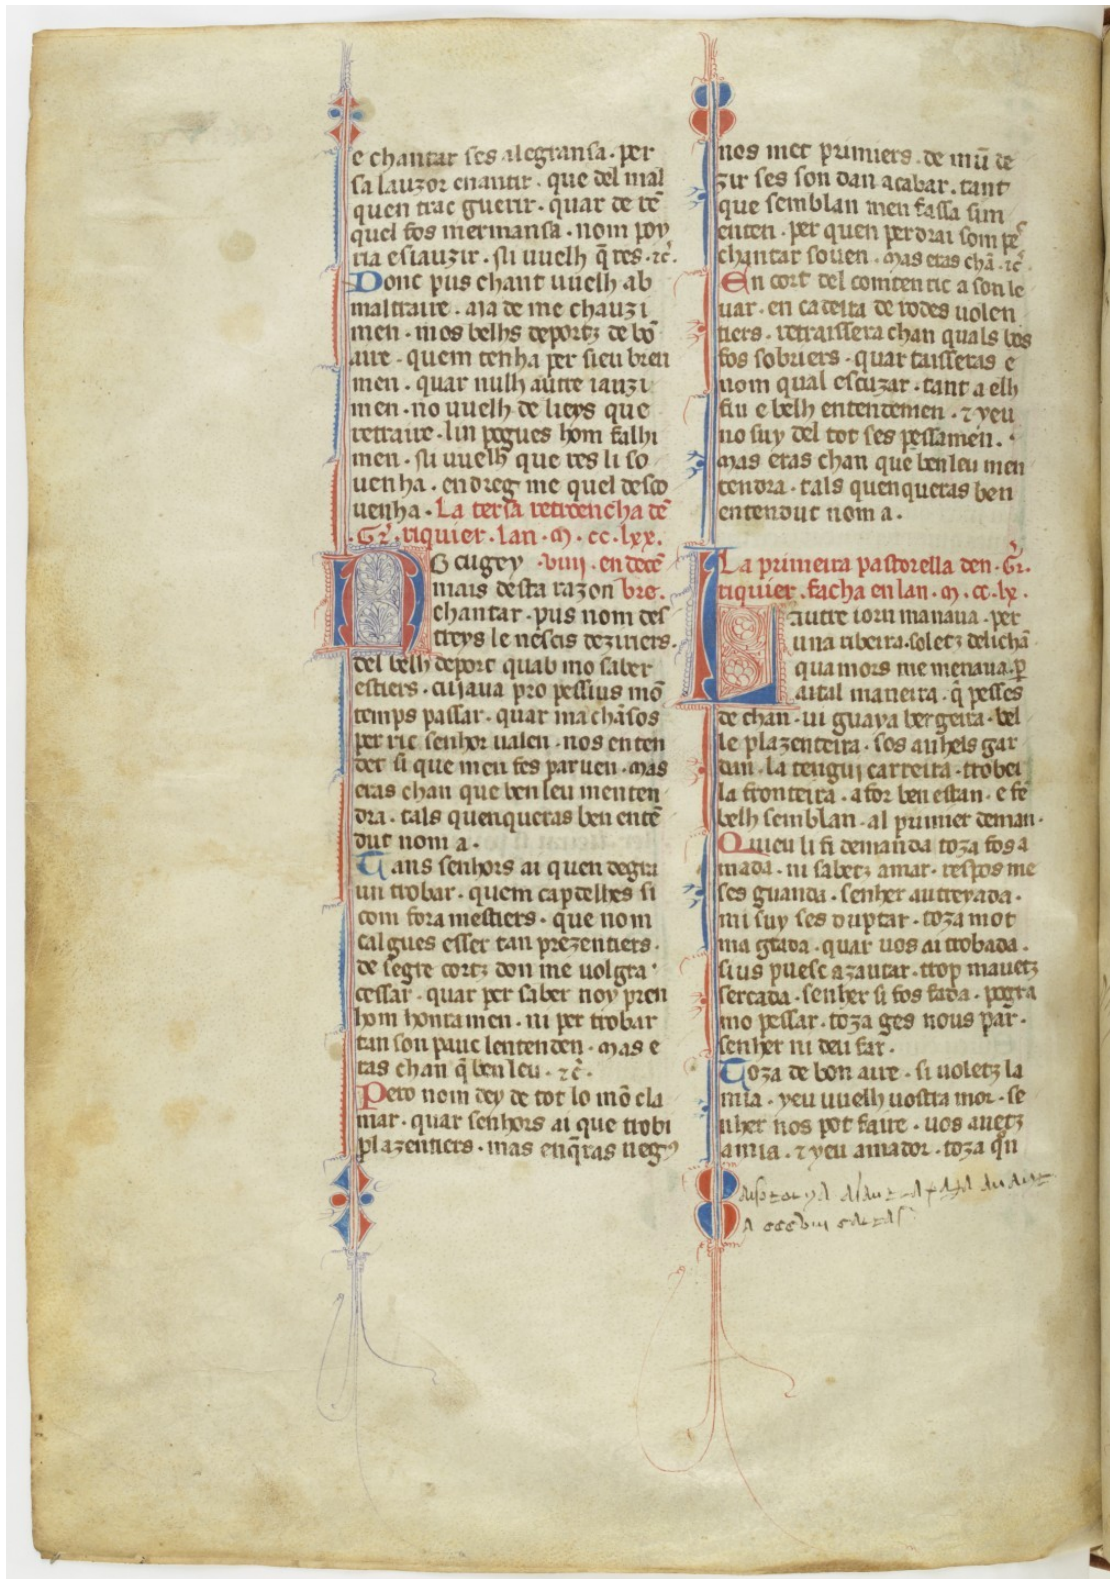 e chantar ses alegransa · per
sa lauzor enantir · que del mal
quen trac guerir · quar de re᷒
quel fos mermansa · nom poy
ria esiauzir · si vuelh q̄ res · ⁊c̄.
Donc pus chant vuelh ab
maltraire · aia de me chauzi
men · mos belhs deportz de bō
aire · quem tenha per sieu breu
men · quar nulh autre iauzi
men · no vuelh de lieys que
retraire · lin pogues hom falhi
men · si vuelh que res li so
uenha · endreg me quel desco
uenha · La tersa retroencha dē
Gr̄. riquier · lan · m · cc · lxx.
No cugey · viiii · en dece᷒
mais desta razon bre.
chantar · pus nom des
treys le nescis deziriers ·
del belh deport quab mo saber
estiers · cujaua pro pessius mō
temps passar · quar ma chāsos
per ric senhor ualen · nos enten
der si que men fes paruen · mas
eras chan que benleu menten
dra · tals quenqueras ben entē
dut nom a ·
Tans senhors ai quen degra
un trobar · quem capdelhes si
com fora mestiers · que nom
calgues esser tan prezentiers ·
de segre cortz don me uolgra
cessar · quar per saber noy pren
hom hontamen · ni per trobar
tan son pauc lentenden · mas e
ras chan q̄ ben leu · ⁊c̄ ·
Pero nom dey de tot lo mō cla
mar · quar senhors ai que trobi
plazentiers · mas enq̄ras negꝯ
nos met primiers · de mū de
zir ses son dan acabar · tant
que semblan men fassa sim
enten · per quen perdrai som pe
chantar souen · mas eras chā · ⁊c̄
En cort del comtenric a son le
uar · en cadeira de rodes uolen
tiers · retraissera chan quals bos
fos sobriers · quar taisseras e
nom qual escuzar · tant a elh
fin e belh entendemen · ⁊ yeu
no suy del tot ses pessamen ·
mas eras chan que benleu men
tendra · tals quenqueras ben
entendut nom a ·
La primeira pastorella den · Gr̄.
riquier · facha en lan · m · cc · lx ·
Lautre iorn manaua · per
una ribeira · soletz delichā
quamors me menaua · ꝑ
aital maneira · q̄ pesses
de chan · ui guaya bergeira · bel
le plazenteira · sos anhels gar
dan · la tengui carreira · trobei
la fronteira · a for benestan · e fe
belh semblan · al primier deman ·
Quieu li fi demanda toza fos a
mada · ni sabetz amar · respos me
ses guanda · senher autreyada ·
mi suy ses duptar · toza mot
ma grada · quar uos ai trobada ·
sius puesc azautar · trop mauetz
sercada · senher si fos fada · pogra
mo pessar · toza ges nous par ·
senher ni deu far ·
Toza de bon aire · si uoletz la
mia · yeu vuelh uostra mor · se
nher nos pot faire · uos auetz
amia · ⁊ yeu amador · toza qn̄